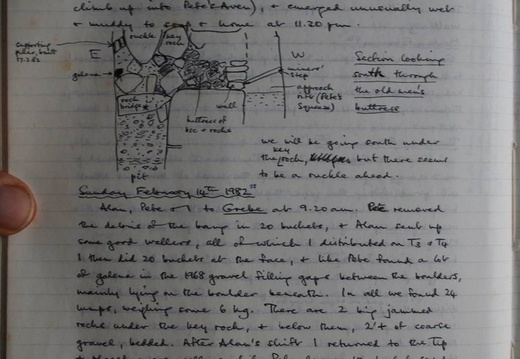 climb up into Pete's Aven), & emerged unusually wet
& muddy to soup & home at 11.20 pm.
supporting
pillar, built
17.2.82
E
ruckle
key
rock
W
galena
miners'
step
approach
(Pete's
Squeeze)
rock
bridge
wall
buttress of
& rocks
pit
Section looking
south through
the old men's
buttress
we will be going south under
key
the rock, but there seems
to be a ruckle ahead.
Sunday February 14th 1982
Alan, Pete & I to Grebe at 9.20am. Pete removed
the debris of the bang in 20 buckets, & Alan sent up
some good wallers, all of which I distributed on T3 & T4
I then did 20 buckets at the face, & like Pete found a lot
of galena in the 1968 gravel filling gaps between the boulders,
mainly lying on the boulder beneath. In all we found 24
lumps, weighing some 6 kg. There are 2 big jammed
rocks under the key rock, & below them, 2'+ of coarse
gravel, bedded. After Alan's shift I returned to the Tip